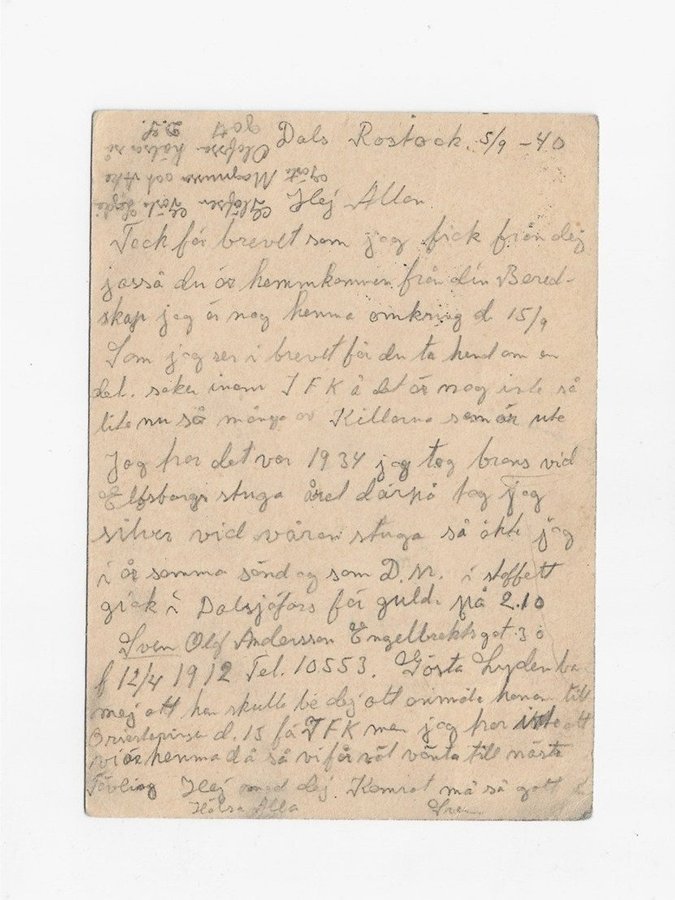 Dals Rostock. 5/9 -40
Hej Allan
Tack för brevet som jag fick från dej
jasså du är hemmkommen från din Bered-
skap jag är nog hemma omkring d 15/9
Som jag ser i brevet får du ta hand om en
del. saker inom IFK å det är nog inte så
lite nu så många av Killarna som är ute
Jag tror det var 1934 jag tog brons vid
Elfsborgs stuga året därpå tog jag
silver vid våran stuga så åkte jag
i år samma söndag som D.M. i staffett
gick i Dalsjöfors för guld på 2.10
Sven Olof Andersson Engelbrektsgat 30
f 12/4 1912 Tel. 10553. Gösta Lyden ba
mej att han skulle be dej att anmäla honom till
d. 15 få IFK men jag tror inte att
vi är hemma då så vi får nöt vänta till nästa
Tävling Hej med dej. Kamrat må så gott
Hälsa Alla Sven
Gösta Magnusson och Åke
Olofsson hälsa så
gott
D.S.